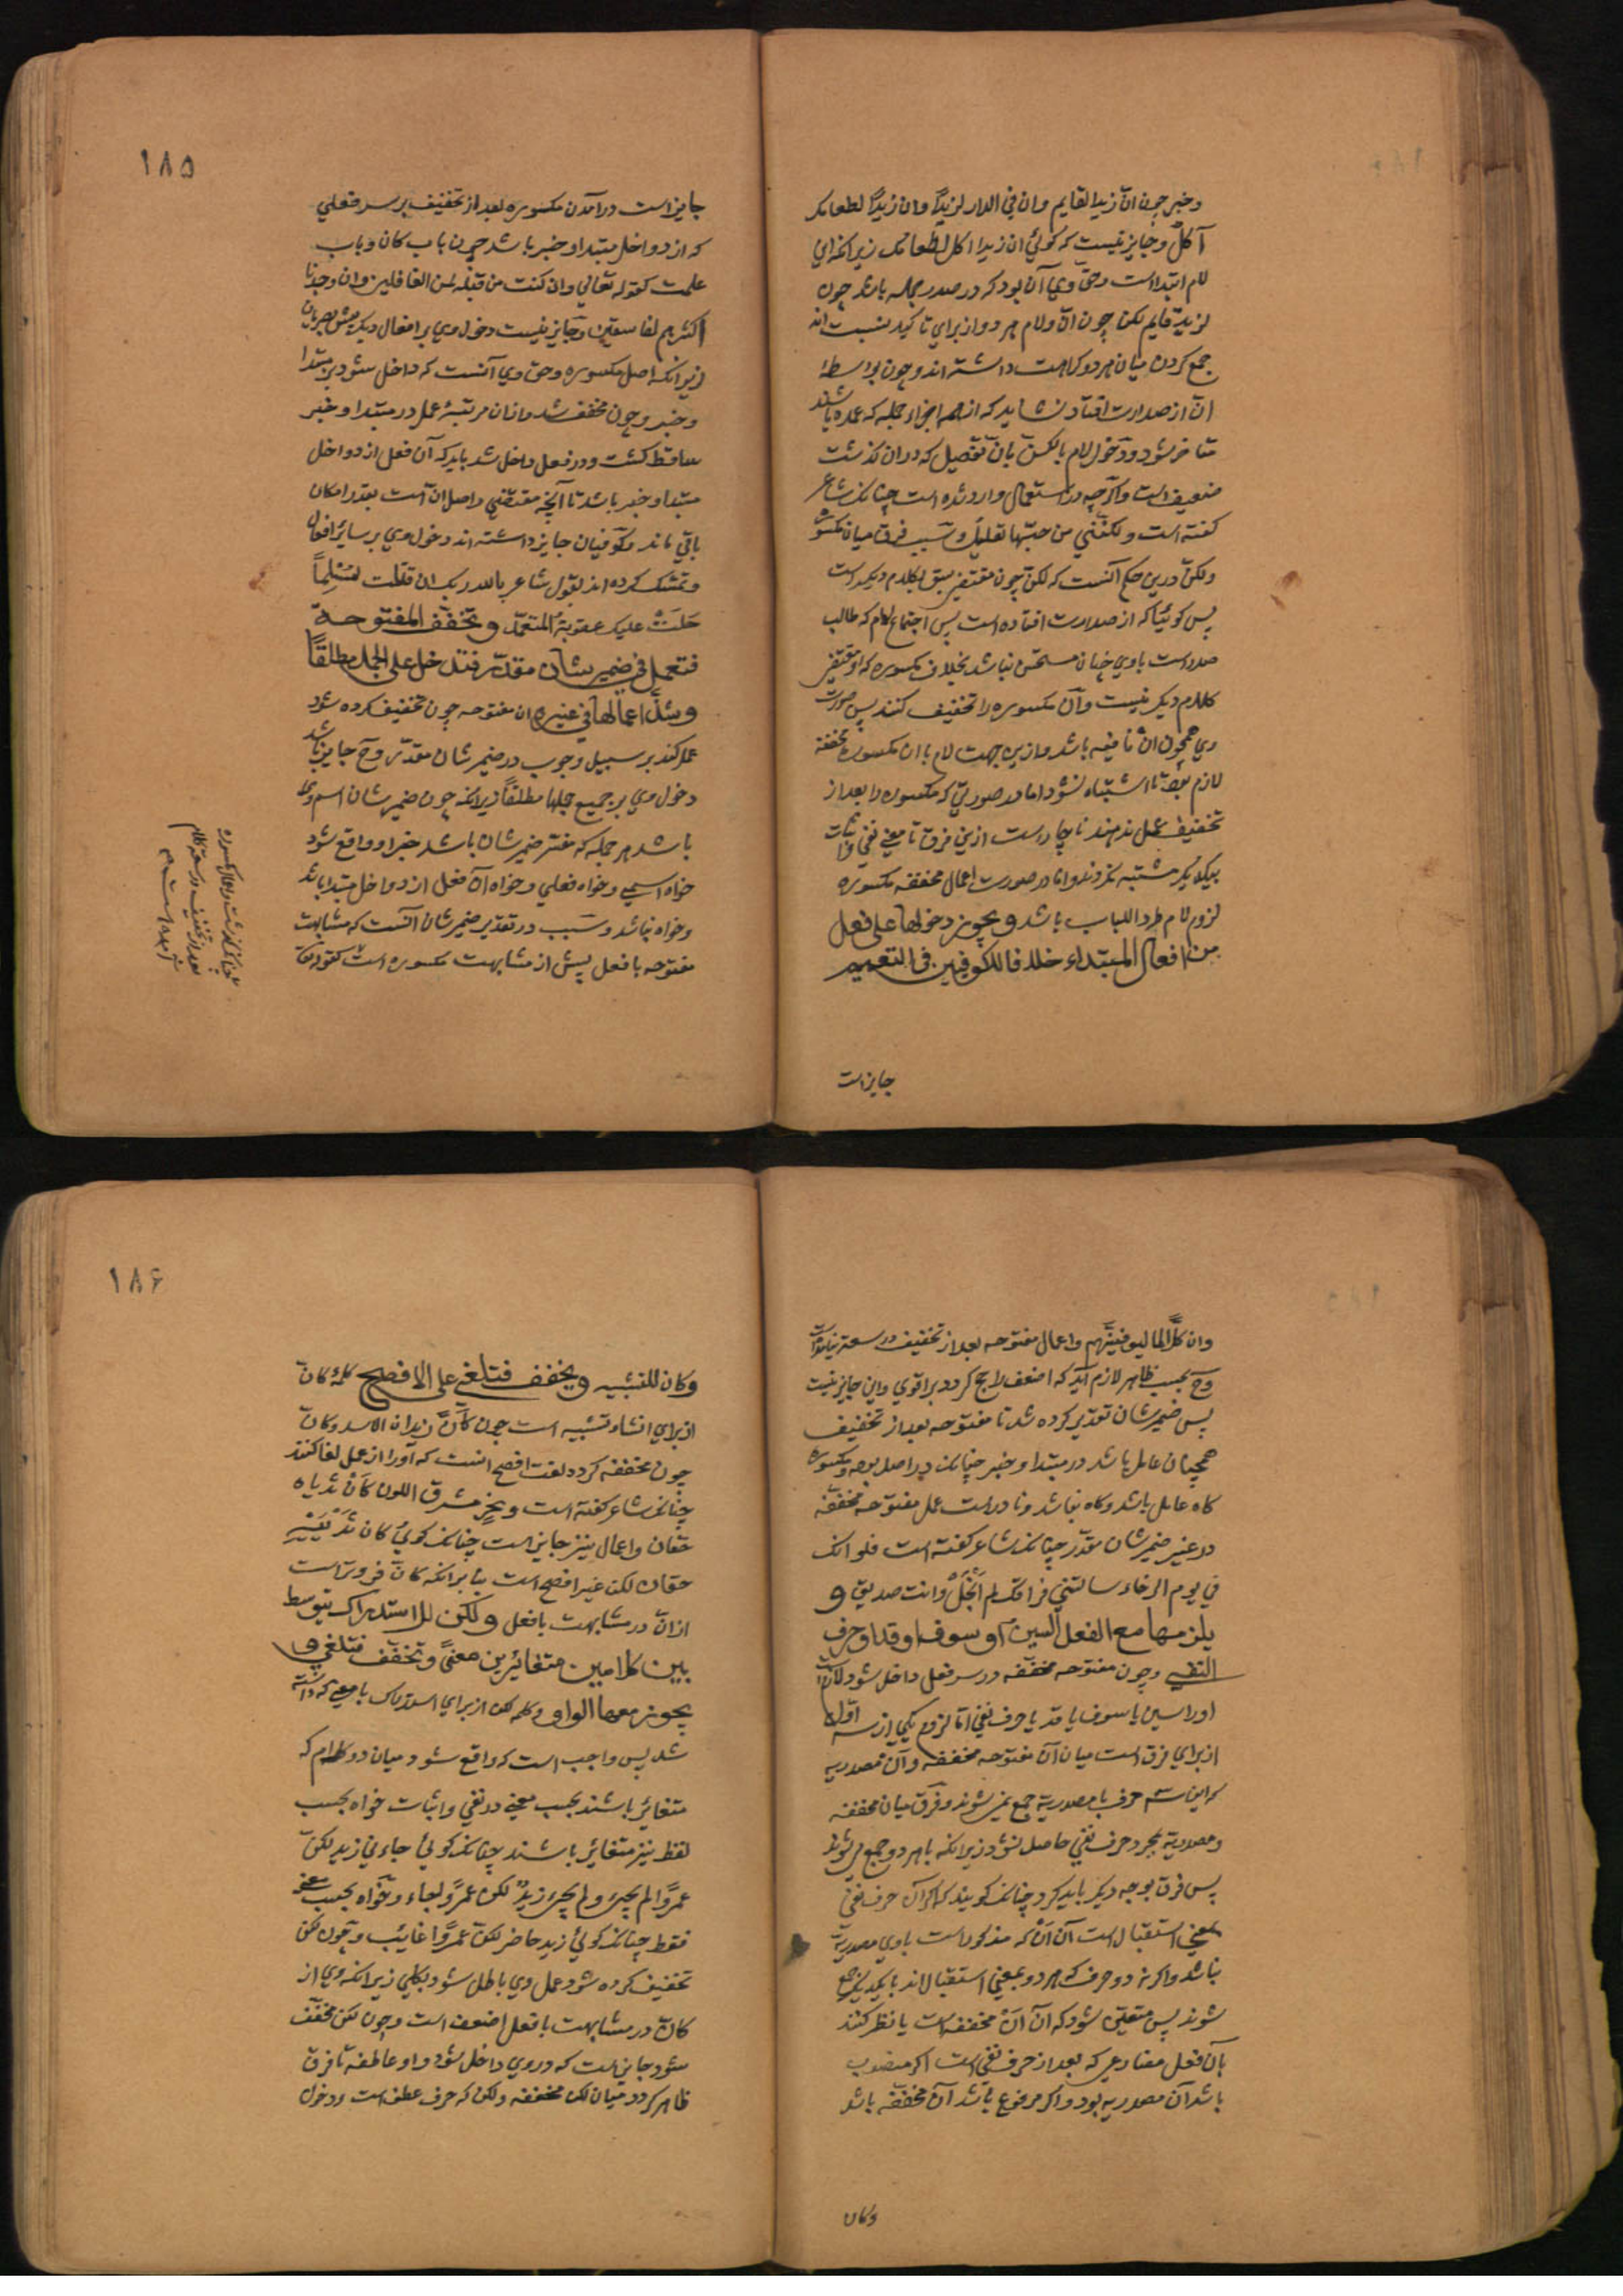 وخبر چون انّ زیدا لقایم وان فی الدار لزیدًا وان زیدًا لطعامک
آکلٌ وجایز نیست که کوئی ان زیدا اکل لطعامک زیرانکه این
لام ابتداست وحق وی آن بود که در صدر جمله باشد چون
لزید قایم لکن چون انّ ولام هر دو از برای تاکید نسبت اند
جمع کردن میان هر دو کراهت داشته اند وچون بواسطۀ
انّ از صدارت افتاد نشاید که از همه اجزاء جمله که عمده باشند
متاخر شود ودخول لام بالکنّ بآن تفصیل که در ان گذشت
ضعیف است واکرچه در استعمال وارد شده است چنانکه شاعر
کفته است ولکننی من حبّها لعلیل وسبب فرق میان مکسوره
ولکنّ درین حکم آنست که لکنّ چون مفتقر بسبق کلام دیکر است
پس کوئیا که از صدارت افتاده است پس اجتماع لام که طالب
صدر است با وی چنان مستحسن نباشد بخلاف مکسوره که او مفتقر
بکلام دیکر نیست وآن مکسوره را تخفیف کنند پس صورت
وی همچون ان نافیه باشد و ازین جهت لام با ان مکسوره مخففه
لازم بود تا اشتباه نشود اما در صورتی که مکسوره را بعد از
تخفیف عمل ندهند ناچار است ازین فرق تا معنی نفی واثبات
بیکدیکر مشتبه نکردند واما در صورت اعمال مخففه مکسوره
لزوم لام طردا للباب باشد ویجوز دخولها علی فعل
من افعال المبتداء خلافا للکوفیین فی التعمیم
جایز است
۱۸۵
جایز است درآمدن مکسوره بعد از تخفیف بر سر فعلی
که از دواخل مبتدا وخبر باشد چون باب کان وباب
علمت کقوله تعالی وان کنت من قبله لمن الغافلین وان وجدنا
اکثرهم لفاسقین وجایز نیست دخول وی بر افعال دیکر پیش بصریان
زیرانکه اصل مکسوره وحق وی آنست که داخل شود بر مبتدا
وخبر وچون مخفف شد واز ان مرتبۀ عمل در مبتدا وخبر
ساقط کشت ودر فعل داخل شد باید که آن فعل از دواخل
مبتدا وخبر باشد تا آنچه مقتضی واصل ان است بقدر امکان
باقی ماند وکوفیان جایز داشته اند دخول وی بر سایر افعال
وتمسک کرده اند بقول شاعر بالله ربک ان قتلت لمسلمًا
حلّت علیک عقوبة المتعمّد وتخفف المفتوحة
فتعمل فی ضمیر شان مقدّر فتدخل علی الجمل مطلقًا
وشذّ اعمالها فی غیره ان مفتوحه چون تخفیف کرده شود
عمل کند بر سبیل وجوب در ضمیر شان مقدّر وح جایز باشد
دخول وی بر جمیع جملها مطلقًا زیرانکه چون ضمیر شان اسم وی
باشد هر جمله که مفسّر ضمیر شان باشد خبر او واقع شود
خواه اسمی وخواه فعلی وخواه آن فعل از دواخل مبتدا باشد
وخواه نباشد وسبب در تقدیر ضمیر شان آنست که مشابهت
مفتوحه با فعل پیش از مشابهت مکسوره است
وان کلًّا لما لیوفینّهم واعمال مفتوحه بعد از تخفیف در سعة
وح بحسب ظاهر لازم آید که اضعف راجح کردد بر اقوی واین جایز نیست
پس ضمیر شان تقدیر کرده شد تا مفتوحه بعد از تخفیف
همچنان عامل باشد در مبتدا وخبر چنانکه در اصل بود ومکسوره
کاه عامل باشد وکاه نباشد ونادر است عمل مفتوحه مخففه
در غیر ضمیر شان مقدّر چنانکه شاعر کفته است فلو انک
فی یوم الرخاء سالتنی فراقک لم ابخل وانت صدیق و
یلزمها مع الفعل السین او سوف او قد او حرف
النفی وچون مفتوحه مخففه در سر فعل داخل شود
او را سین یا سوف یا قد یا حرف نفی اما لزوم یکی از سه اوّل
از برای فرق است میان آن مفتوحه مخففه وآن مصدریه
که این سه حرف با مصدریة جمع نمی شوند وفرق میان مخففه
ومصدریة بمجرد حرف نفی حاصل نشود زیرانکه با هر دو جمع می شوند
پس فرق بوجه دیکر باید کرد چنانکه کویند که اکر آن حرف نفی
بمعنی استقبال است آن اَنْ که مذکور است با وی مصدریة
نباشد واکر نه دو حرف که هر دو بمعنی استقبال اند با یکدیکر جمع
شوند پس متعیّن شود که آن اَنْ مخففه است یا نظر کنند
بآن فعل مضارعی که بعد از حرف نفی است اکر منصوب
باشد آن مصدریه بود واکر مرفوع باشد آن مخففه باشد
وکان
۱۸۶
وکان للتشبیه ویخفف فتلغی علی الافصح کلمۀ کانّ
از برای انشاء تشبیه است چون کانّ زیدا الاسد وکانّ
چون مخففه کردد لغت افصح آنست که او را از عمل الغا کنند
چنانکه شاعر کفته است ونحر مشرق اللون کان ثدیاه
حقان واعمال نیز جایز است چنانکه کوئی کان ثدییه
حقان لکن غیر افصح است بنابرانکه کانّ فروتر است
از انّ در مشابهت با فعل ولکن للاستدراک یتوسط
بین کلامین متغایرین معنًی وتخفّف فتلغی و
یجوز معها الواو وکلمه لکن از برای استدراک با معنی که دانسته
شد پس واجب است که واقع شود میان دو کلام که
متغایر باشند بحسب معنی در نفی واثبات خواه بحسب
لفظ نیز متغایر باشند چنانکه کوئی جاءنی زید لکنّ
عمرًوا لم یجیٔ ولم یجیٔ زیدٌ لکن عمرًوا جاء وخواه بحسب معنی
فقط چنانکه کوئی زید حاضر لکنّ عمرًوا غایٔب وچون لکن
تخفیف کرده شود عمل وی باطل شود بکلی زیرانکه وی از
کانّ در مشابهت با فعل اضعف است وچون لکن مخفّف
شود جایز است که در وی داخل شود واو عاطفه تا فرق
ظاهر کردد میان لکن مخففه ولکن که حرف عطف است ودخول